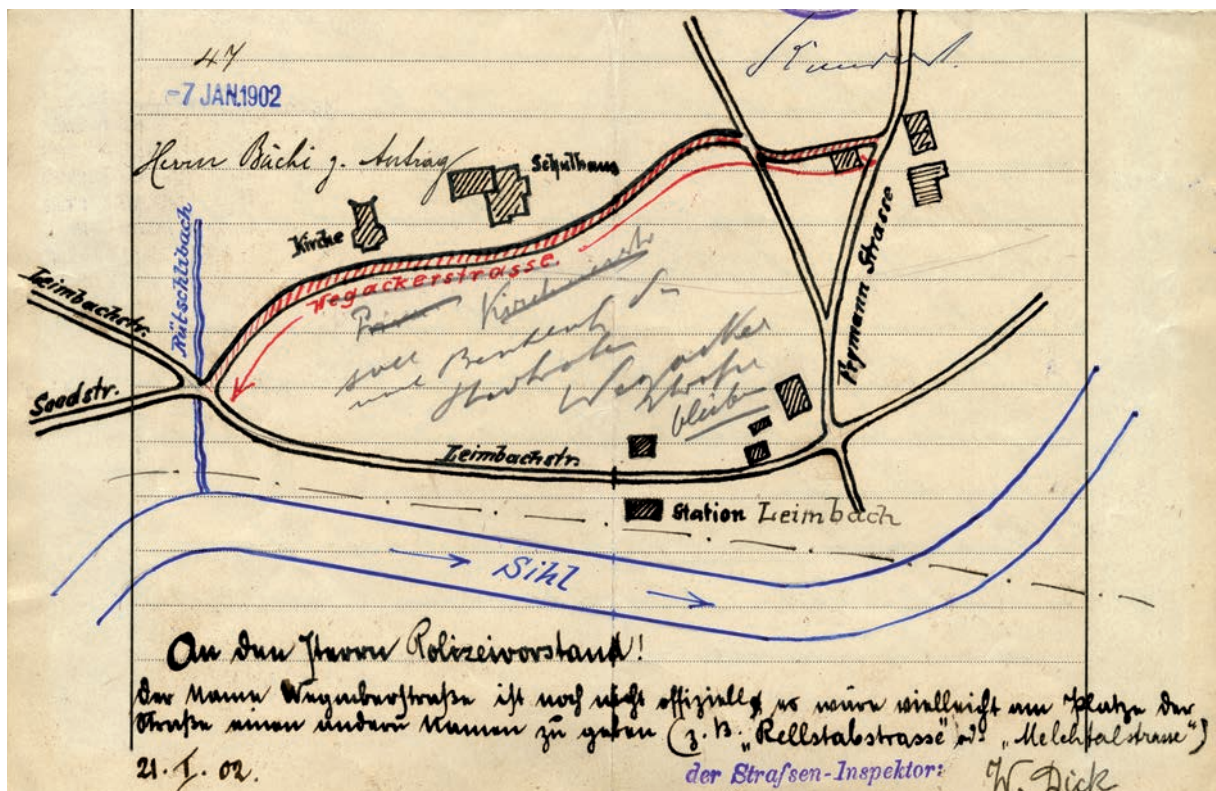 47
-7 JAN. 1902
Herrn Büchi z. Antrag
Schulhaus
Kirche
Wegackerstrasse.
Rütschlibach
Leimbachstr.
Soodstr.
Frymann Strasse
soll
Wegacker
strasse
bleiben
Leimbachstr.
Station Leimbach
Sihl
An den Herrn Polizeivorstand!
Der Name Wegackerstraße ist noch nicht offiziell, es wäre vielleicht am Platze der
Straße einen andern Namen zu geben (z. B. "Rellstabstrasse" od. "Melchtalstrasse")
21. I. 02.
der Straßen-Inspektor:
W. Dick